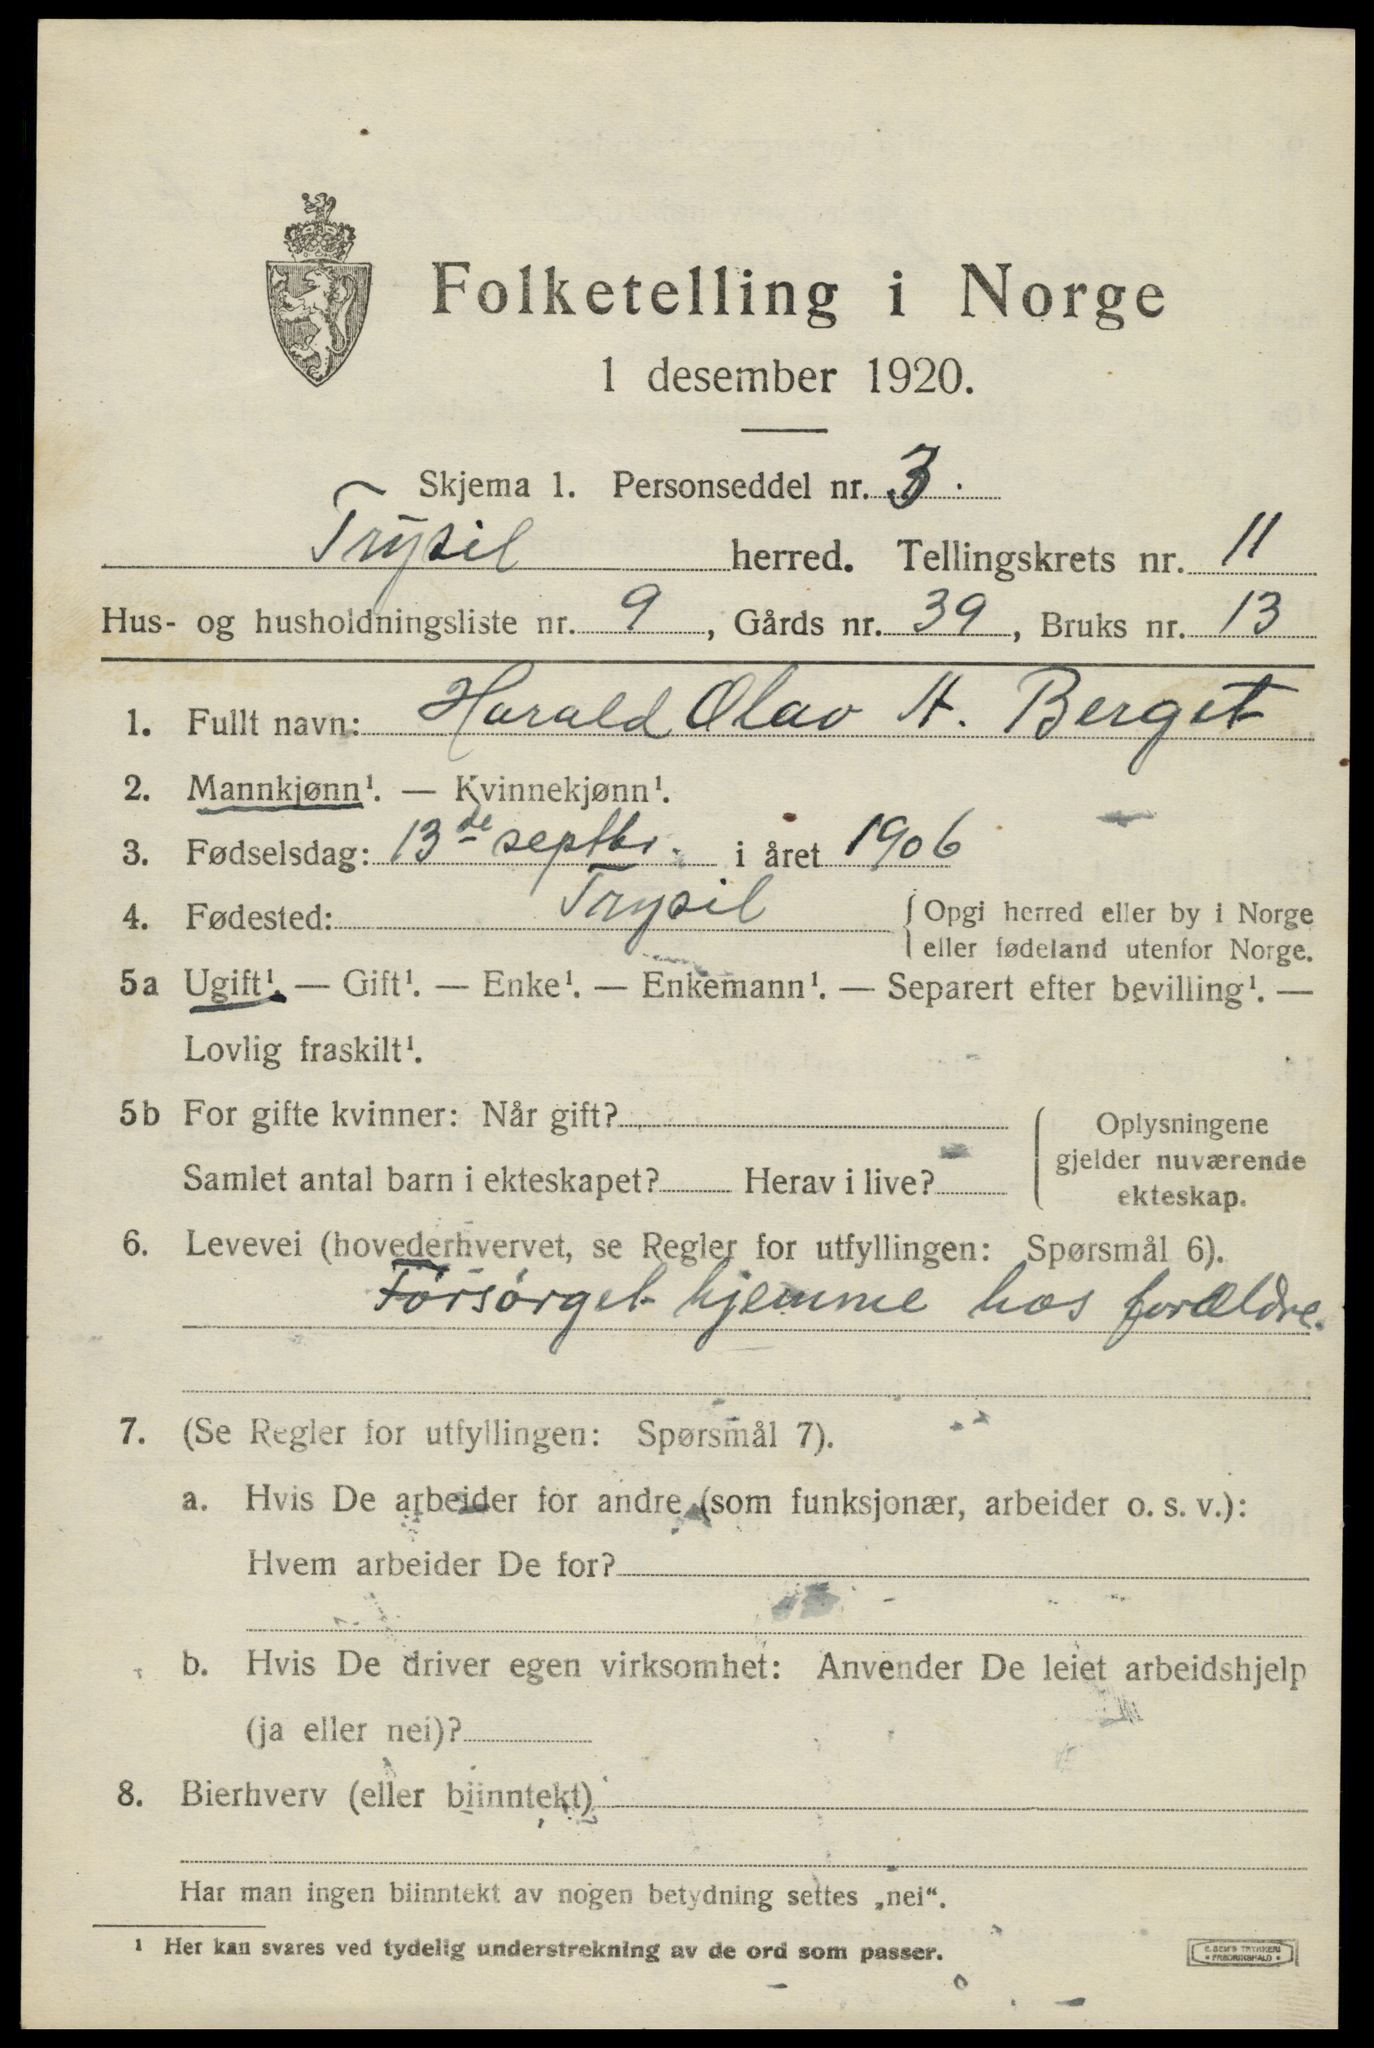 Folketelling i Norge
1 desember 1920.
Skjema 1. Personseddel nr. 3.
Trysil herred. Tellingskrets nr. 11
Hus- og husholdningsliste nr. 9, Gårds nr. 39, Bruks nr. 13
1. Fullt navn: Harald Olav H. Berget
2. Mannkjønn¹. — Kvinnekjønn¹.
3. Fødselsdag: 13de septbr. i året 1906
4. Fødested: Trysil { Opgi herred eller by i Norge
eller fødeland utenfor Norge.
5a Ugift¹. — Gift¹. — Enke¹. — Enkemann¹. — Separert efter bevilling¹. —
Lovlig fraskilt¹.
5b For gifte kvinner: Når gift?
Samlet antal barn i ekteskapet? Herav i live?
Oplysningene
gjelder nuværende
ekteskap.
6. Levevei (hovederhvervet, se Regler for utfyllingen: Spørsmål 6).
Forsørget hjemme hos forældre.
7. (Se Regler for utfyllingen: Spørsmål 7).
a. Hvis De arbeider for andre (som funksjonær, arbeider o. s. v.):
Hvem arbeider De for?
b. Hvis De driver egen virksomhet: Anvender De leiet arbeidshjelp
(ja eller nei)?
8. Bierhverv (eller biinntekt)
Har man ingen biinntekt av nogen betydning settes „nei“.
¹ Her kan svares ved tydelig understrekning av de ord som passer.
E. SEM'S TRYKKERI
• FREDRIKSHALD •